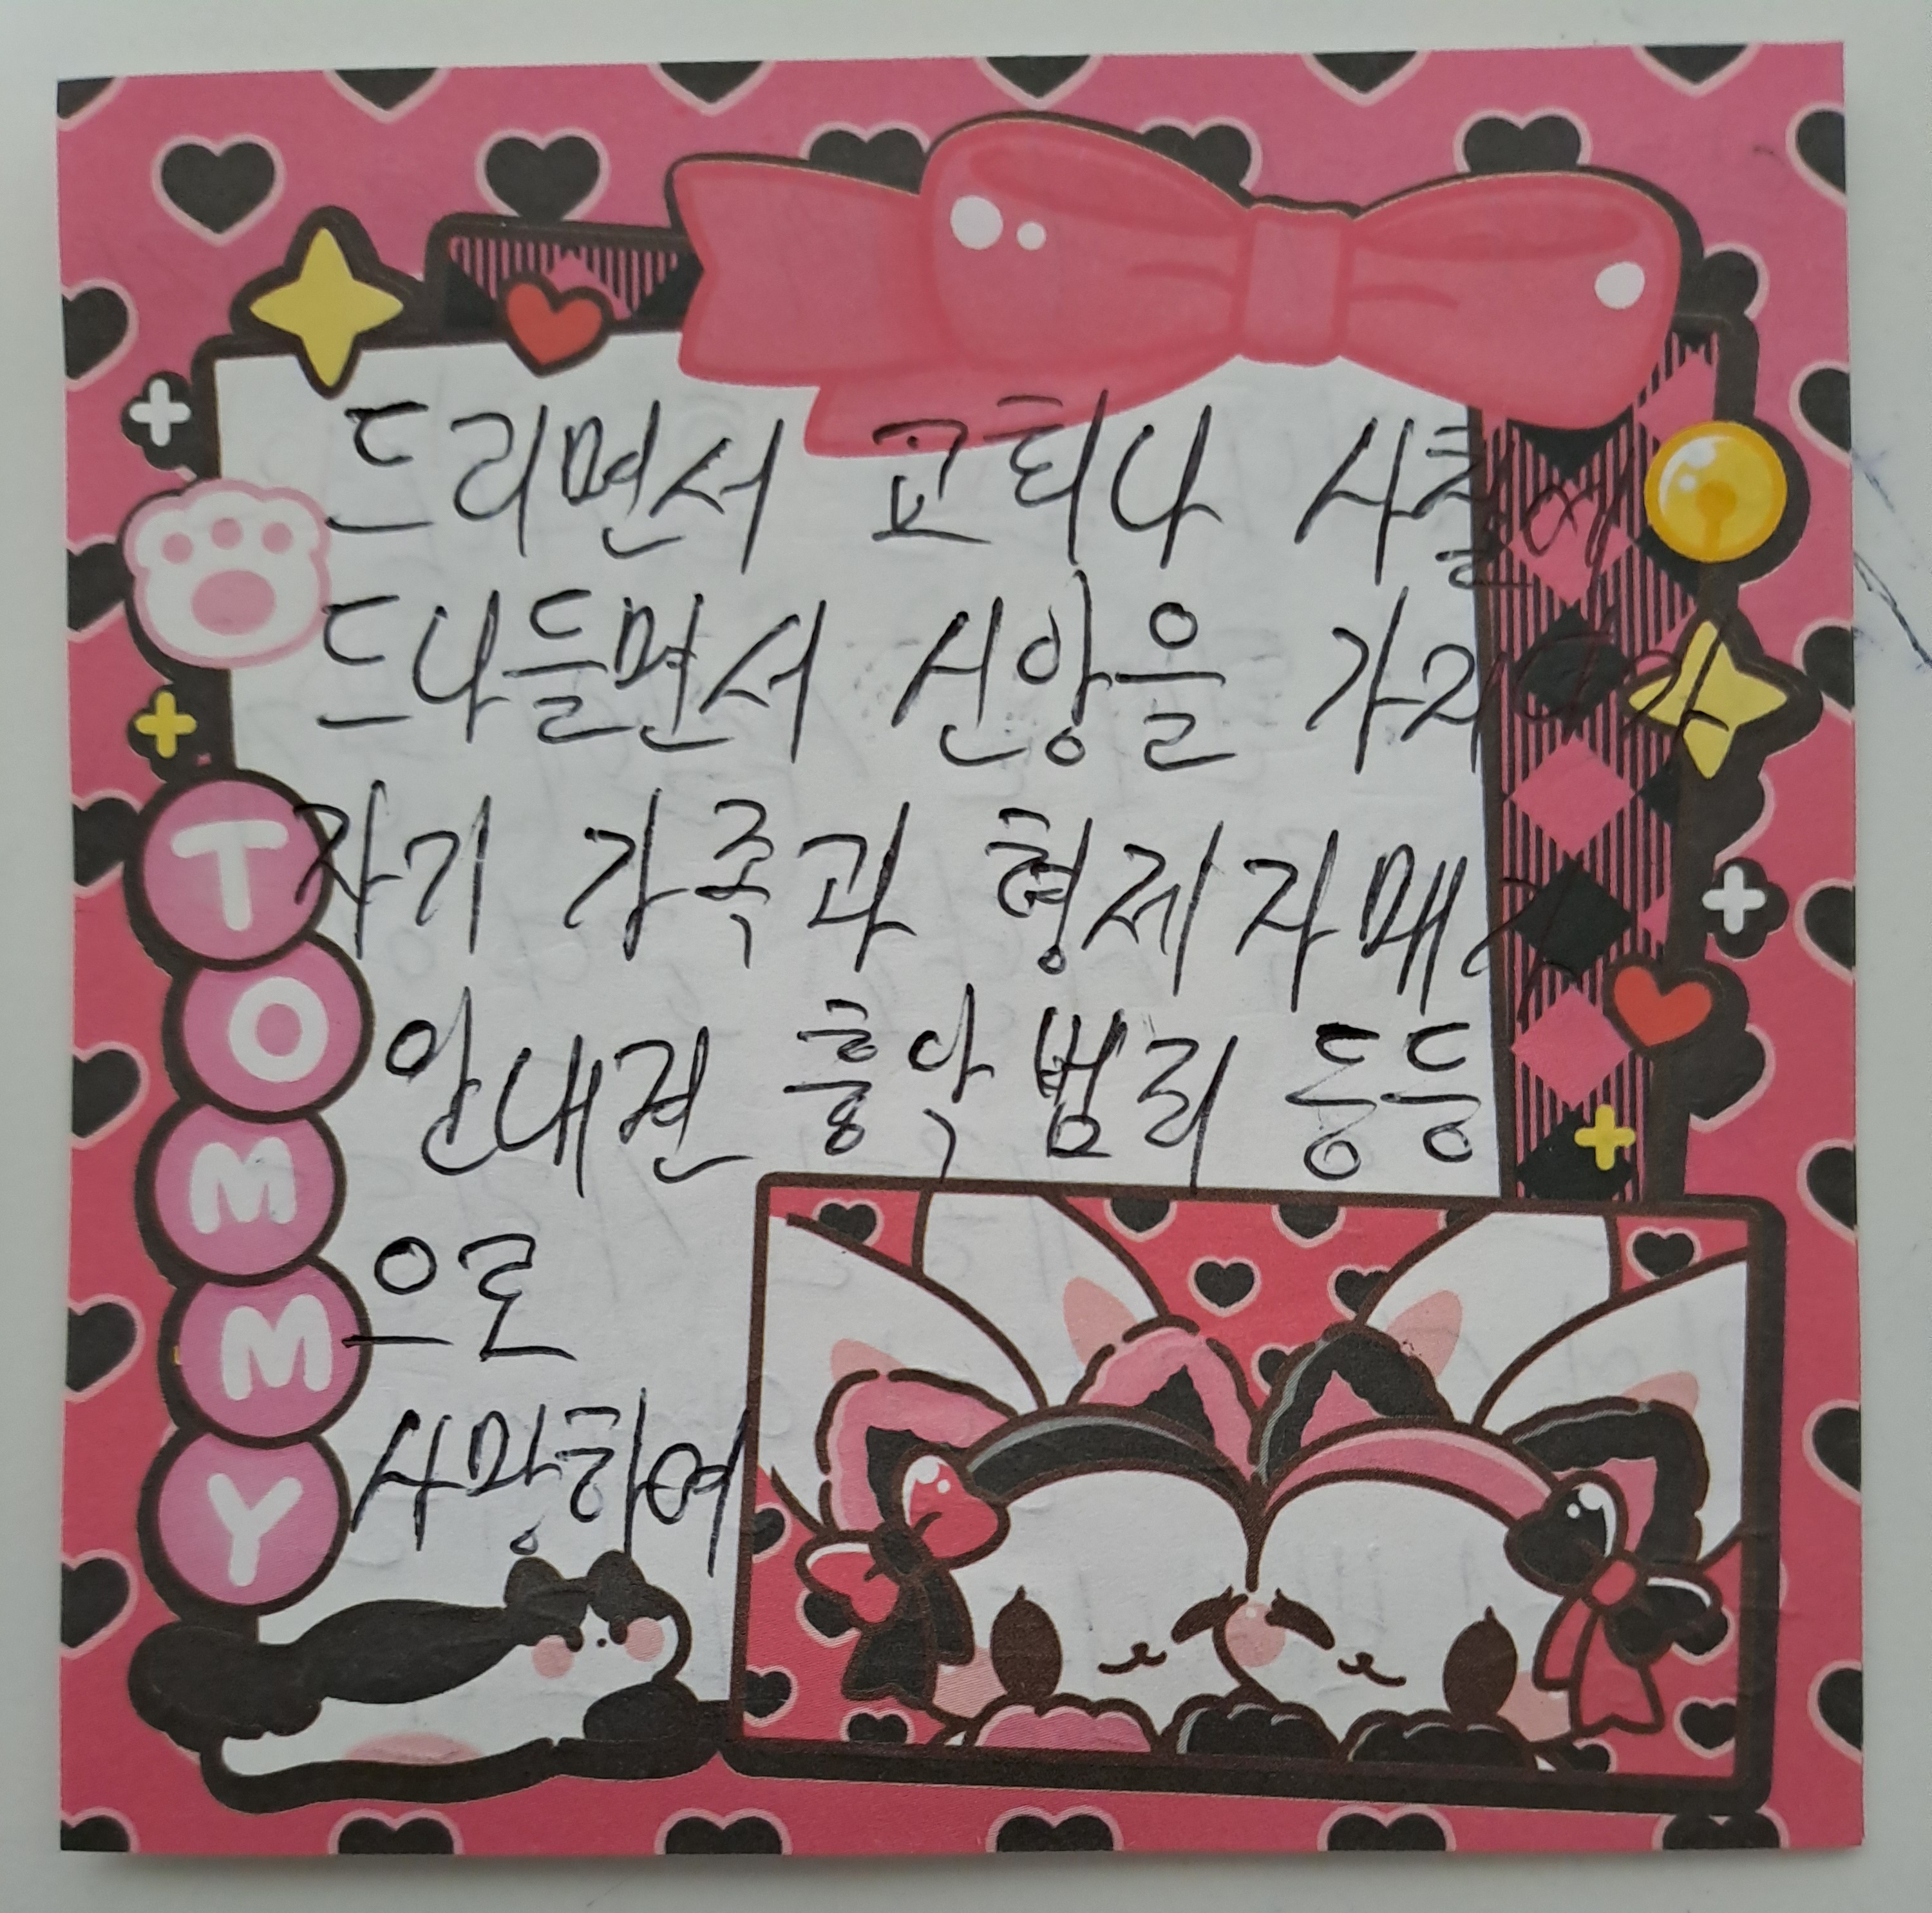 드리면서 교회나 사찰에
드나들면서 신앙을 가지면서
자기 가족과 형제자매가
안내견 흉악범죄 등등
으로
사망하여
TOMMY